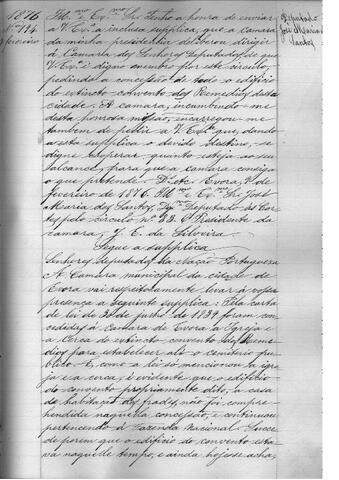 1876
Nº 174
fevereiro
Deputado
José Maria
Santos
Illmo e Exmo Snr Tenho a honra de enviar
a V. Exa a inclusa supplica, que a camara
da minha presidencia deliberou dirigir
á Camara dos Senhores Deputados, de que
V. Exa é digno membro por este circulo,
pedindo a concessão de todo o edificio
do extincto convento dos Remedios desta
cidade. A camara, incumbindo-me
desta honrosa missão, encarregou-me
tambem de pedir a V. Exa que, dando
a esta supplica o devido destino, se
digne cooperar quanto esteja ao seu
alcance, para que a camara consiga
o que pretende. Ds. etc Evora, de
fevereiro de 1876. Illmo e Exmo Snr José
Maria dos Santos, Dgmo Deputado ás Cor-
tes pelo circulo nº 83. O Presidente da
camara, J. E. da Silveira
Segue a supplica
Senhores Deputados da Nação Portugueza
A Camara municipal da cidade de
Evora vai respeitosamente levar á vossa
presença a seguinte supplica: Pela carta
de lei de 30 de junho de 1839 foram con-
cedidas á camara de Evora a Igreja
e a Cerca do extincto convento dos Reme-
dios para estabelecer alli o cemiterio pu-
blico. E, como a lei só mencionou a igre-
ja e a cerca é evidente que o edificio
do convento propriamente dito, a casa
de habitação dos frades, não foi compre-
hendida naquella concessão, e continuou
pertencendo á Fazenda Nacional. Succe-
de porem que o edificio do convento esta-
va naquelle tempo, e ainda hoje se acha,